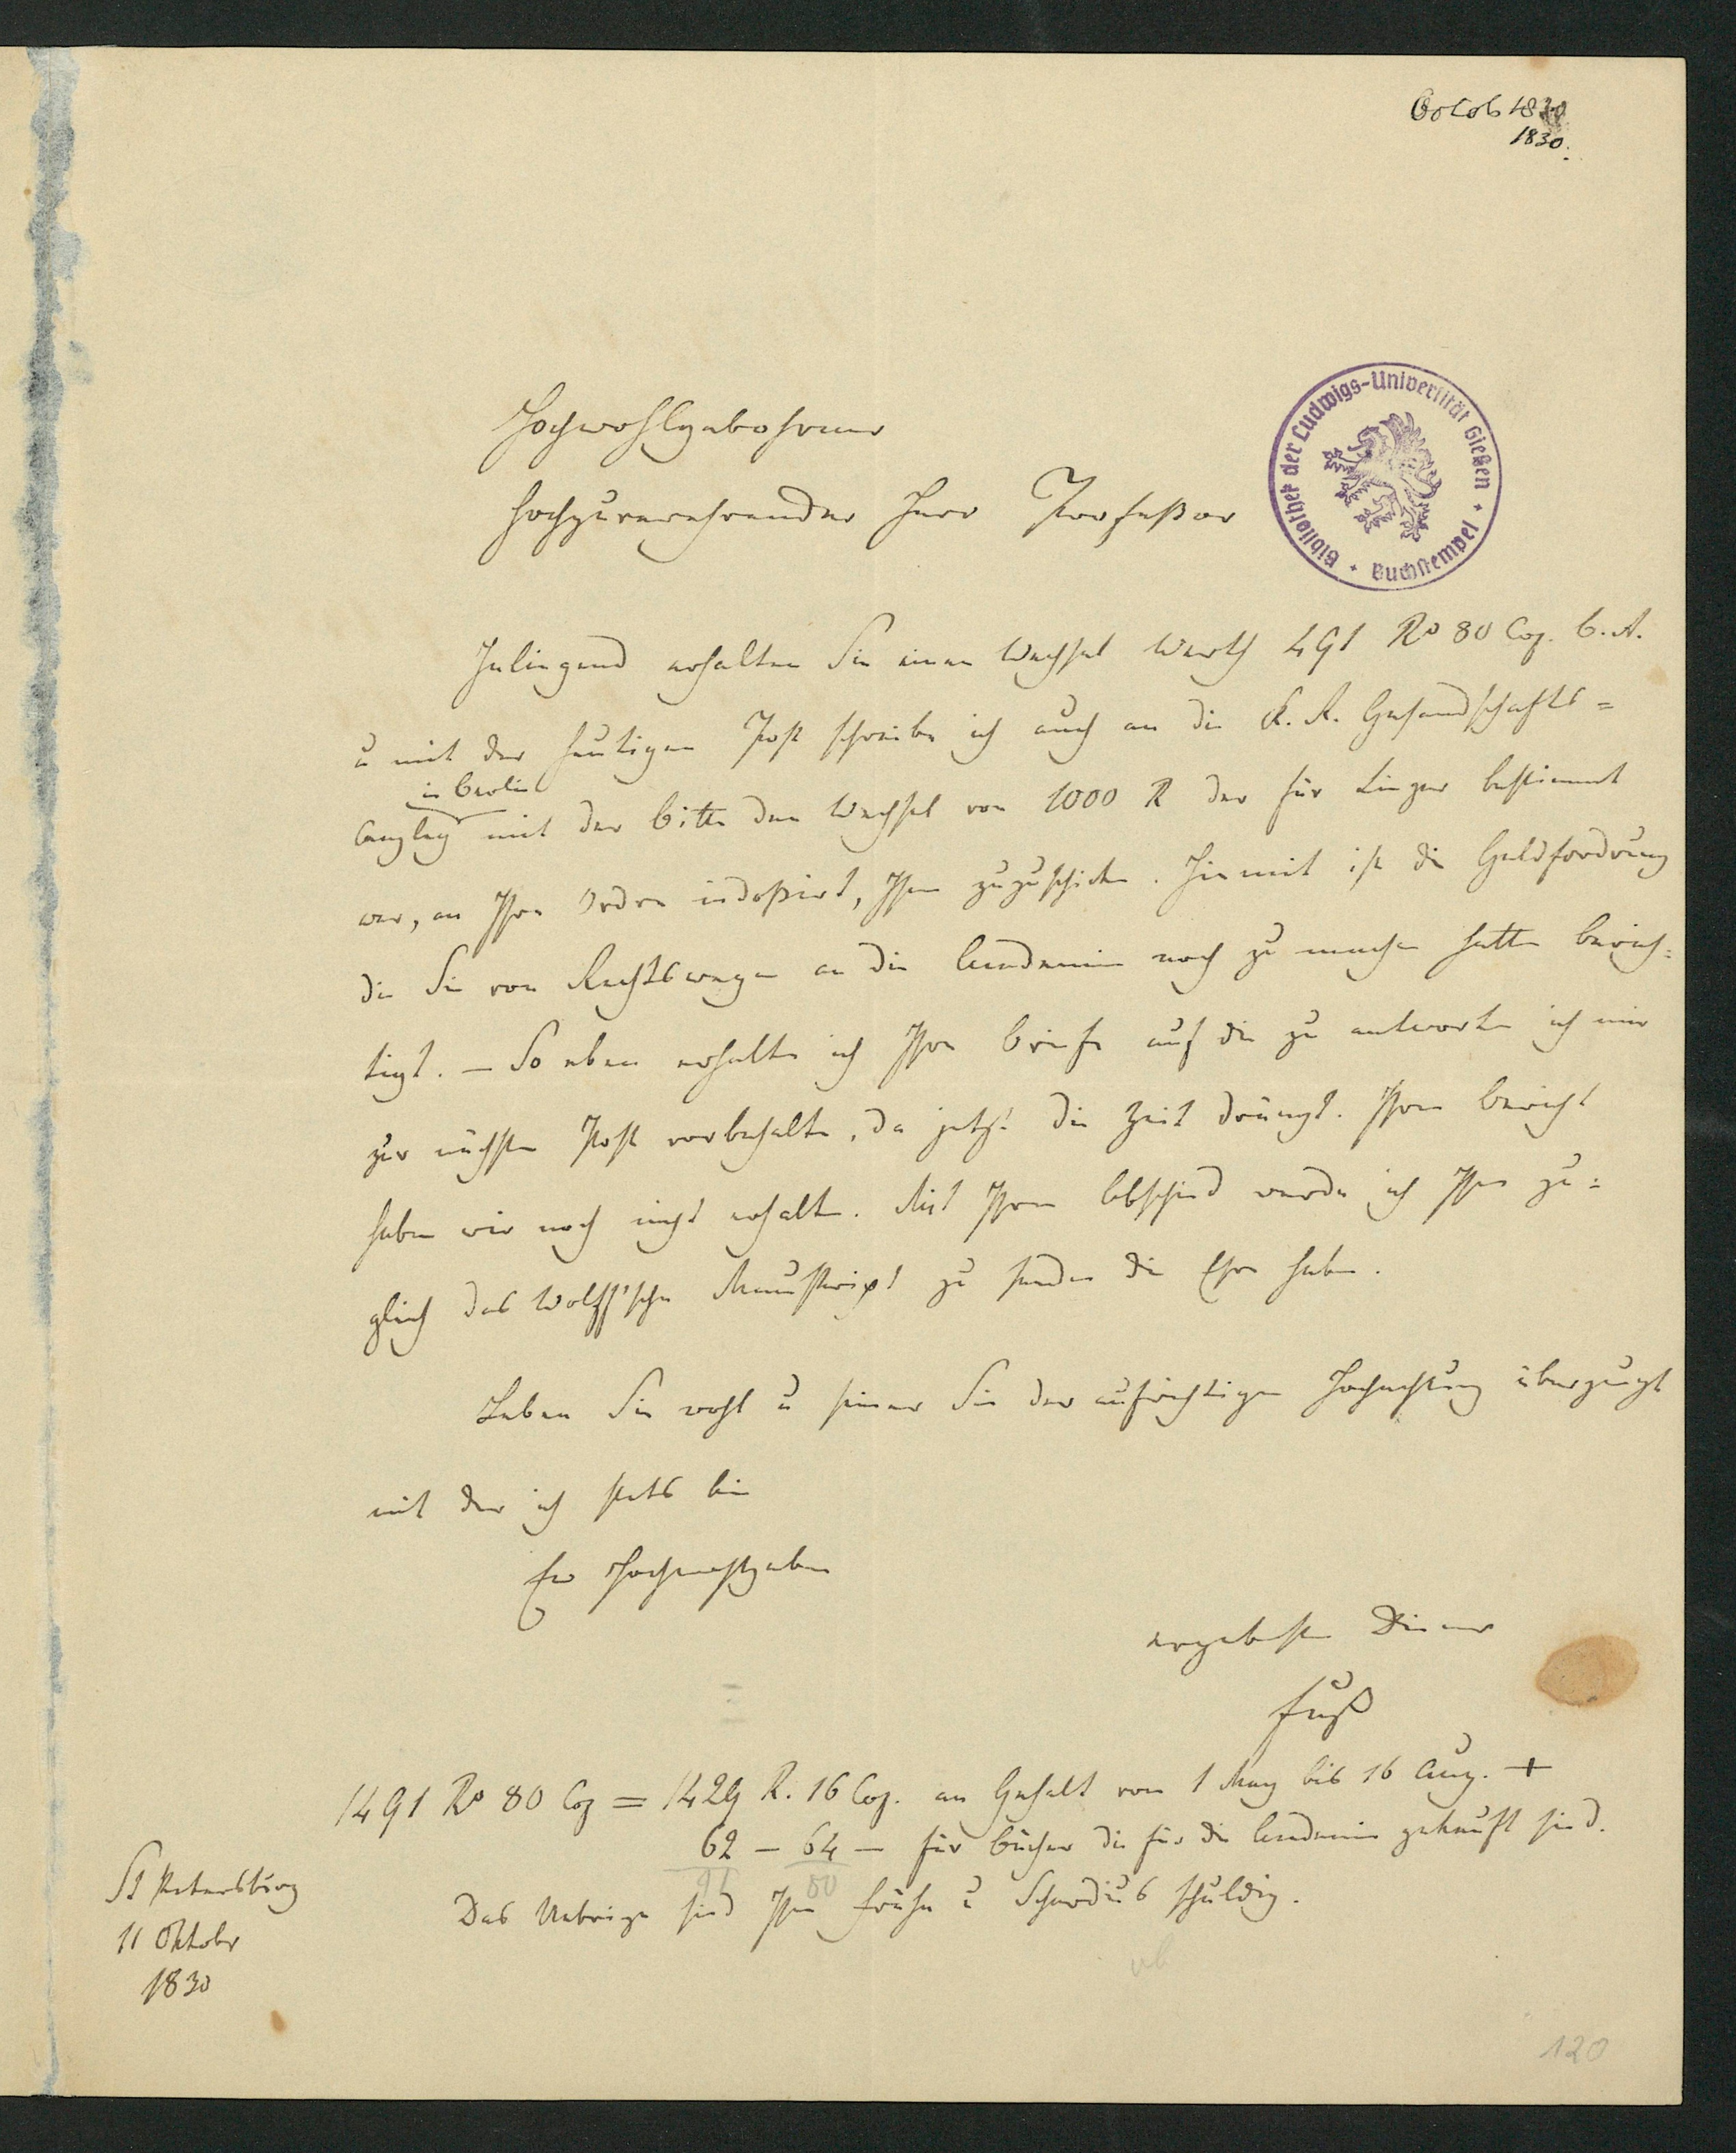 Octob 1830
1830.
Hochwohlgebohrner
Hochzuverehrender Herr Profeßor
Bibliothek der Ludwigs-Universität Gießen + Buchstempel +
Inliegend erhalten Sie einen Wechsel werth 491 Ro 80 Cop. B. A.
u mit der heutigen Post schreibe ich auch an die K. R. Gesandschafts=
in Berlin
Canzley mit der Bitte den Wechsel von 1000 R der für Singer bestimmt
war, an Ihre Ordre indoßirt, Ihnen zuzuschicken. Hiemit ist die Geldfordrung
die Sie von Rechtswegen an die Academie noch zu machen hatten berich=
tigt. – So eben erhalte ich Ihre Briefe auf die zu antworten ich mir
zur nächsten Post vorbehalte, da jetzt die Zeit drängt. Ihren Bericht
haben wir noch nicht erhalten. Mit Ihrem Abschied werde ich Ihnen zu=
gleich das Wolff'sche Manuskript zu senden die Ehre haben.
Leben Sie wohl u seien Sie der aufrichtigen Hochachtung überzeugt
mit der ich stets bin
Ew Hochwohlgeben
ergebenster Diener
Fuß
1491 Ro 80 Cop = 1429 R. 16 Cop. an Gehalt vom 1 May bis 16 Aug. +
62 – 64 – für Bücher die für die Academie gekauft sind.
91 80
Das Uebrige sind Ihnen Frähn u Schardius schuldig.
St Petersburg
11 Oktober
1830
120